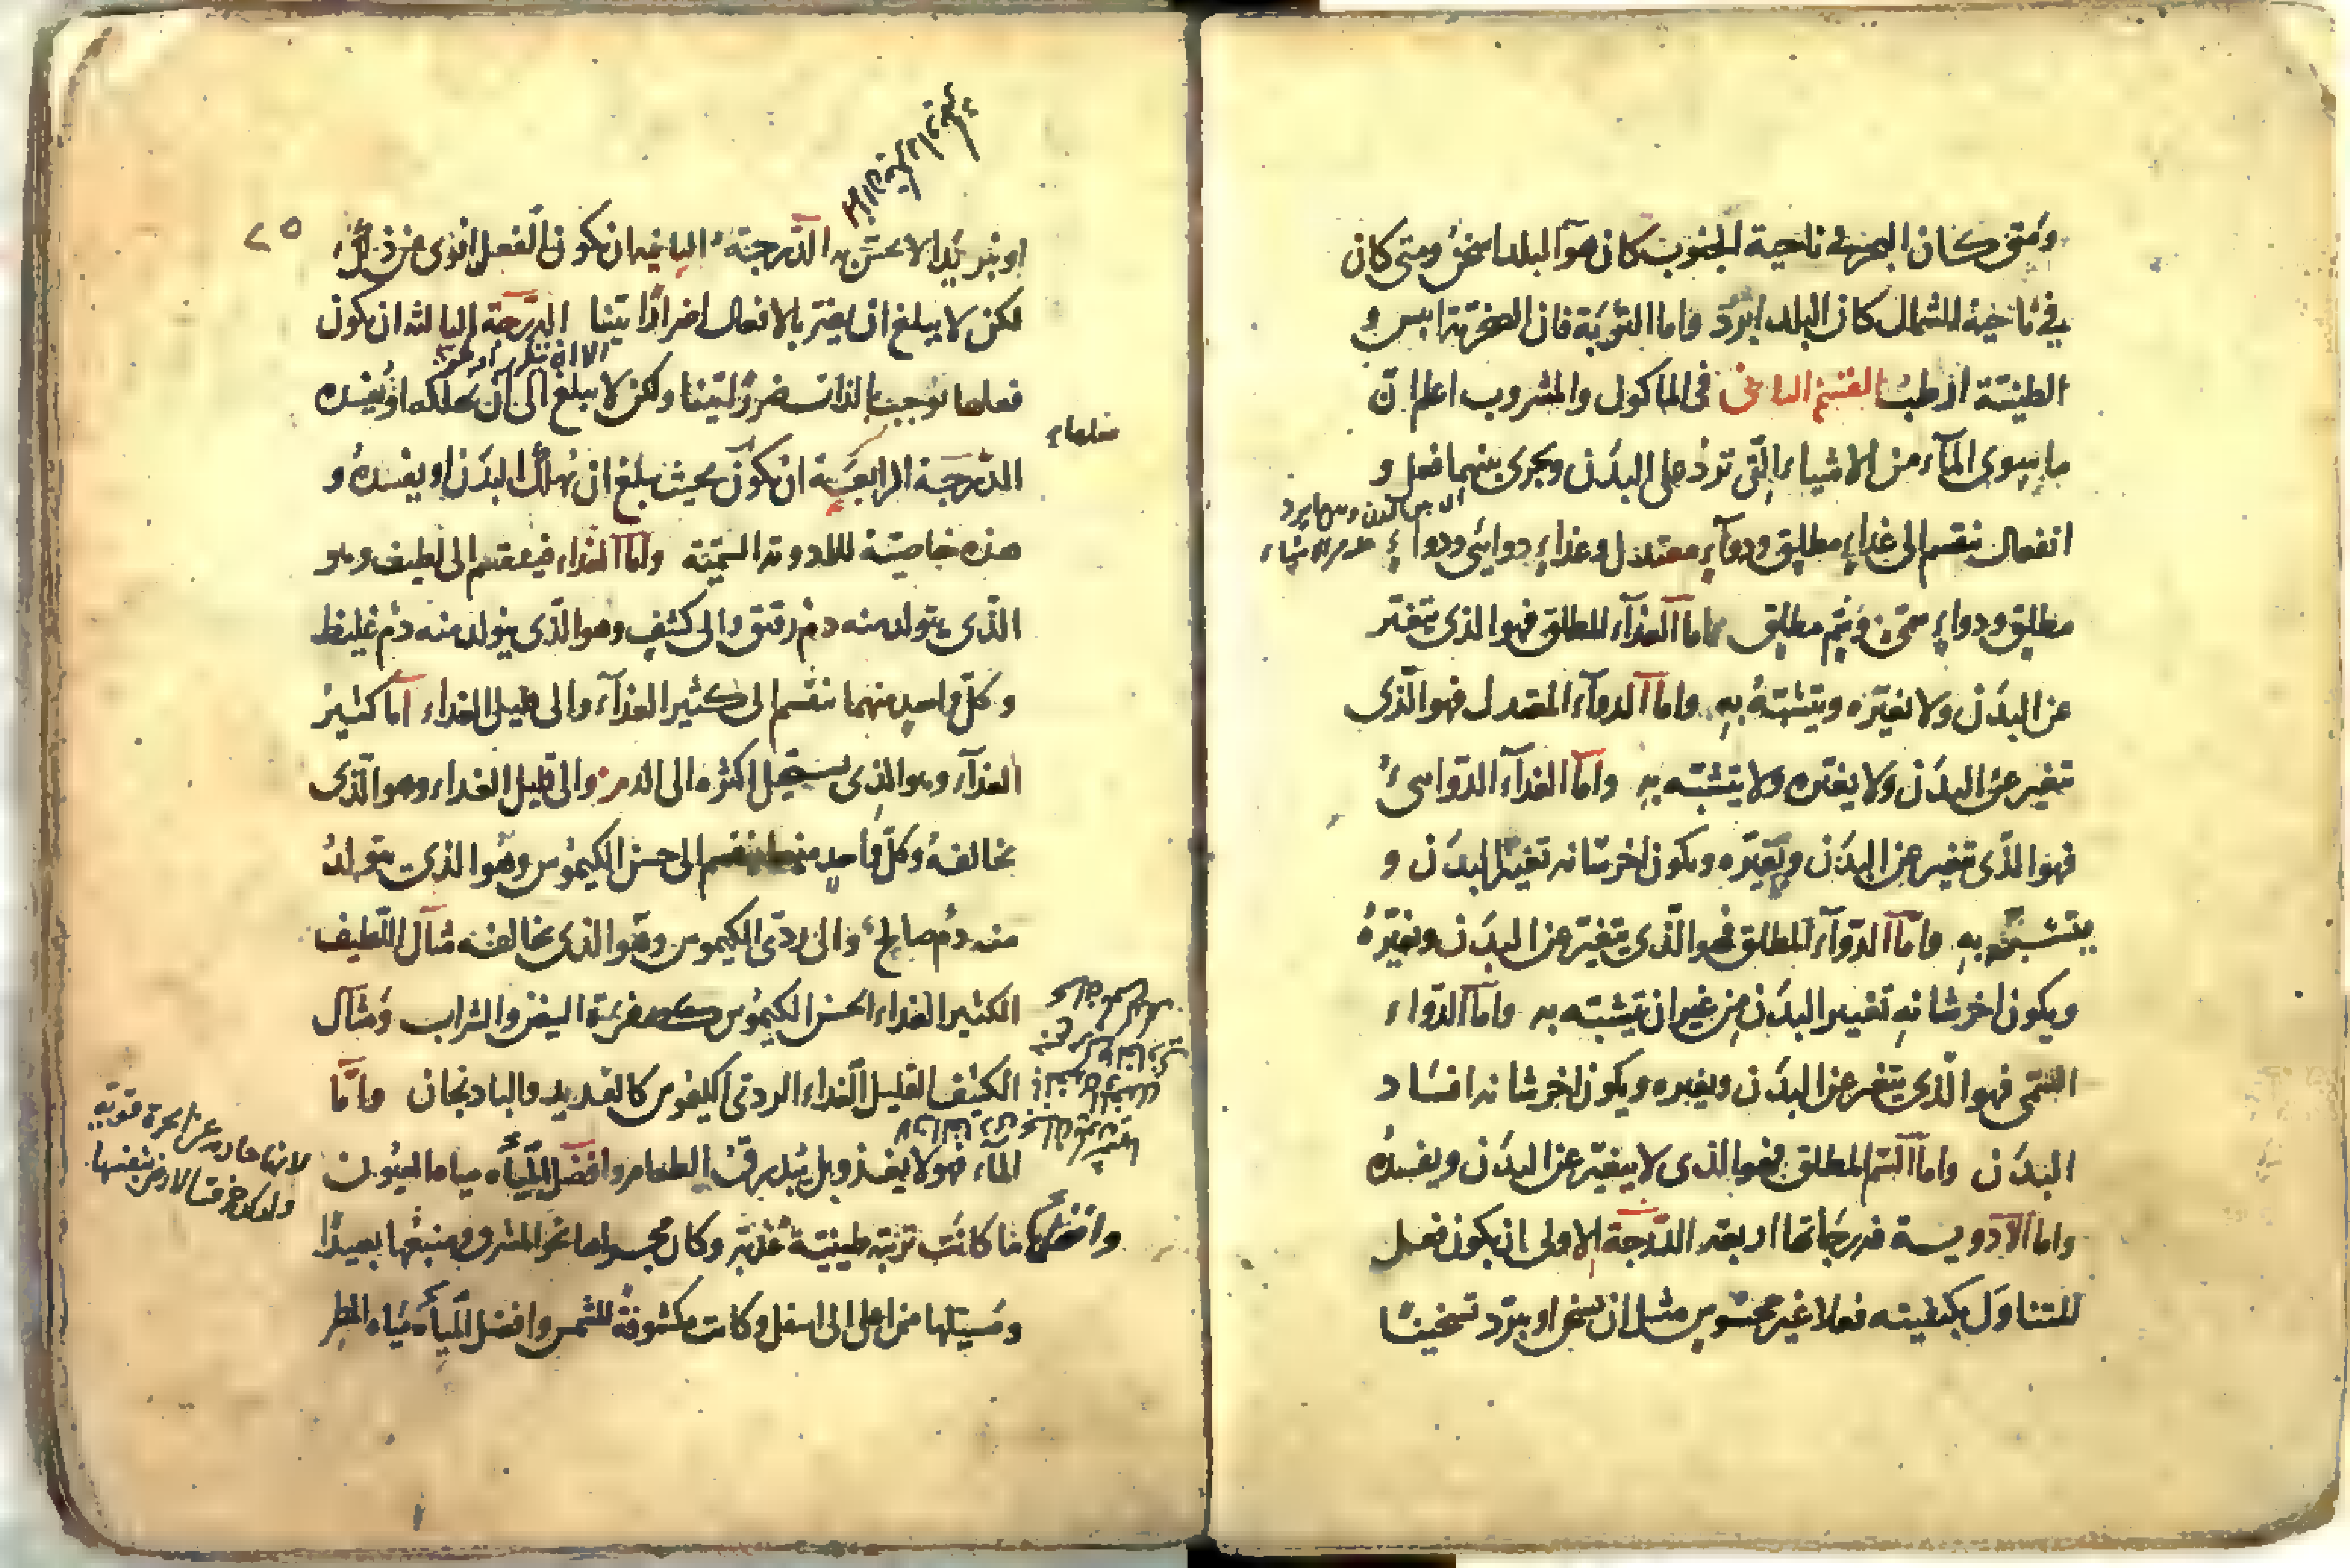 ومتى كان البحر في ناحية الجنوب كان هوآ البلد اسخن ومتى كان
في ناحية الشمال كان البلد ابرد واما التربة فان الصخرية ايبس و
الطينية ارطب القسم الثاني فى الماكول والمشروب اعلم ان
ما سوى المآء من الاشياء التى ترد على البدن ويجرى بينهما فعل و
انفعال ينقسم الى غذاء مطلق ودوآء معتدل وغذاء دوائى ودواء
مطلق ودواء سمى وسم مطلق اما الغذآء المطلق فهو الذى يتغير
عن البدن ولا يغيره ويتشبه به واما الدوآء المعتدل فهو الذى
يتغير عن البدن ولا يغيره ولا يتشبه به واما الغذآء الدوائى
فهو الذى يتغير عن البدن ويغيره ويكون اخر شانه تغير البدن و
يتشبه به واما الدوآء المطلق فهو الذى يتغير عن البدن ويغيره
ويكون اخر شانه تغيير البدن من غير ان يتشبه به واما الدواء
السمى فهو الذى يتغير عن البدن ويغيره ويكون اخر شانه افساد
البدن واما السم المطلق فهو الذى لا يتغير عن البدن ويفسده
واما الادوية فدرجاتها اربعة الدرجة الاولى ان يكون فعل
المتناول بكيفيته فعلا غير محسوس مثل ان يسخن او يبرد تسخينا
٢٥
او تبريدا لا يحس به الدرجة الثانية ان يكون الفعل اقوى من ذلك
لكن لا يبلغ ان يضر بالافعال اضرارا بينا الدرجة الثالثة ان يكون
فعلها توجب بالذات ضررا بينا ولكن لا يبلغ الى ان يهلكه او يفسده
الدرجة الرابعة ان يكون بحيث يبلغ ان يهلك البدن او يفسده و
هذه خاصية للادوية السمية واما الغذاء فينقسم الى لطيف وهو
الذى يتولد منه دم رقيق والى كثيف وهو الذى يتولد منه دم غليظ
وكل واحد منهما ينقسم الى كثير الغذآء والى قليل الغذاء اما كثير
الغذآء وهو الذى يستحيل اكثره الى الدم والى قليل الغذاء وهو الذى
يخالفه وكل واحد منهما ينقسم الى حسن الكيموس وهو الذى يتولد
منه دم صالح والى ردى الكيموس وهو الذى يخالفه مثال اللطيف
الكثير الغذاء الحسن الكيموس كصفرة البيض والشراب ومثال
الكثيف القليل الغذاء الردى الكيموس كالقديد والباذنجان واما
المآء فهو لا يغذو بل يبدرق الطعام وافضل المياه مياه العيون
وافضلها ما كانت تربته طينية عذبة وكان مجراها نحو المشرق ومنبعها بعيدا
ومسيلها من اعلى الى اسفل وكانت مكشوفة للشمس وافضل المياه مياه المطر